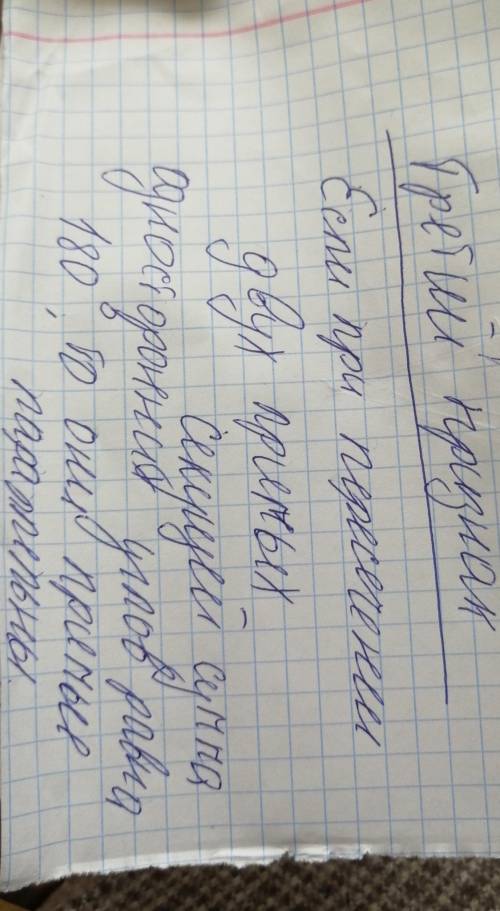 Третий признак
Если при пересечении
двух прямых
секущей сумма
односторонних углов равна
180, то они прямые
параллельны